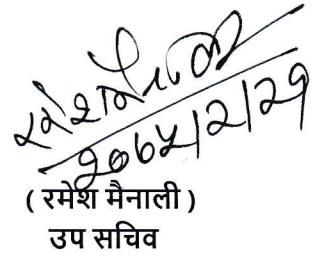 २०७५/२/२१
( रमेश मैनाली )
उप सचिव